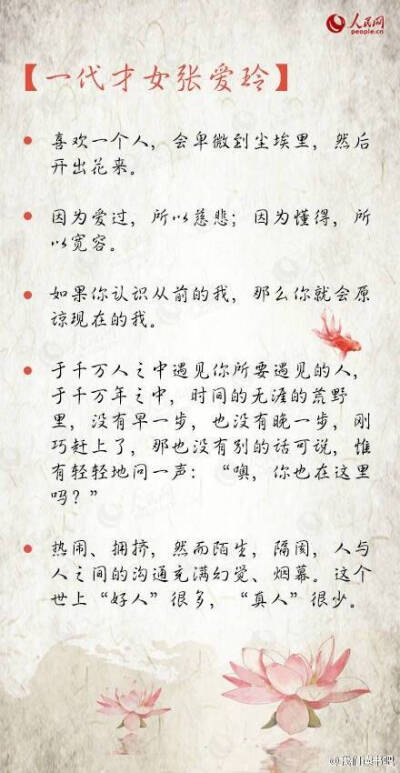 人民网
people.cn
【一代才女张爱玲】
喜欢一个人，会卑微到尘埃里，然后
开出花来。
因为爱过，所以慈悲；因为懂得，所
以宽容。
如果你认识从前的我，那么你就会原
谅现在的我。
于千万人之中遇见你所要遇见的人，
于千万年之中，时间的无涯的荒野
里，没有早一步，也没有晚一步，刚
巧赶上了，那也没有别的话可说，惟
有轻轻地问一声：“噢，你也在这里
吗？”
热闹、拥挤，然而陌生，隔阂，人与
人之间的沟通充满幻觉、烟幕。这个
世上“好人”很多，“真人”很少。
@我们爱书吧